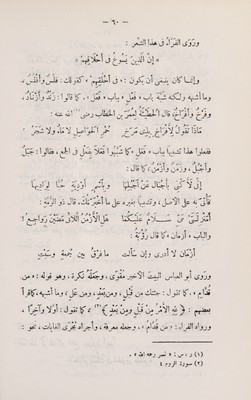 — ٦٠ —
وروَى الفرَّاءُ فى هذا الشعر :
* إنَّ الَّذِينَ يَسُوغُ فى أَحْلَاقِهِمْ *
وإنما كان ينبغى أن يكون : « فى أَحْلُقِهِمْ » كقولك : فَلْسٌ وأَفْلُسٌ ،
وما أشبهه ولكنه شبّه باب « فَعْلٍ » بباب « فَعَلٍ » . كما قالوا : زَنْدٌ وأَزْنَادٌ ،
وفَرْخٌ وأَفْرَاخٌ ، قال الحُطَيْئَةُ لِعُمَرَ بن الخطاب رضى الله عنه :
مَاذَا تَقُولُ لِأَفْرَاخٍ بِذِى مَرَخٍ حُمْرِ الحَوَاصِلِ لَا مَاءٌ وَلَا شَجَرُ
ففعلوا هذا تشبيها بباب « فَعَلٍ » كما شَبَّهُوا فَعَلًا بِفَعْلٍ فى الجمع ، فقالوا : جَبَلٌ
وأَجْبُلٌ ، وزَمَنٌ وأَزْمُنٌ ، كما قال :
إنِّى لَأَكْنِى بأَجْبَالٍ عَنْ أَجْبُلِهَا وَبِاسْمِ أَوْدِيَةٍ عَنْ اسْمِ وَادِيهَا
فأتى به على الأصل ، وتشبيها بغيره على ما أخبرتك ، قال ذو الرُّمَّة :
أَمَنْزِلَتَىْ مَىٍّ سَلَامٌ عَلَيْكُمَا هَلِ الأَزْمُنُ اللَّائِى مَضَيْنَ رَوَاجِعُ !
والباب « أزمان » كما قال رُؤْبَةُ :
أَزْمَانَ لَا أَدْرِى وإنْ سَأَلْتِ مَا فَرْقُ بَيْنَ جُمْعَةٍ وَسَبْتِ
وروى أبو العباس البيت الأخير مُقْوًى ، وجعله نكرة ، وهو قوله : « من
قُدَّامٍ » ، كما تقول : جئتك من قَبْلٍ ، ومن بَعْدٍ ، ومن عَلٍ ، وما أشبهه ، كما قرأ
بعضهم : ﴿ لِلهِ الأَمْرُ مِنْ قَبْلٍ ومِنْ بَعْدٍ ﴾ (٢) كما تقول : أوّلًا وآخِرًا ،
ورواه الفراء : « من قُدَّامُ » ، وجعله معرفة ، وأجراه مُجْرَى الغايات ، نحو :
(١) ر ، س : « عمر رحمه الله » .
(٢) سورة الروم ٤